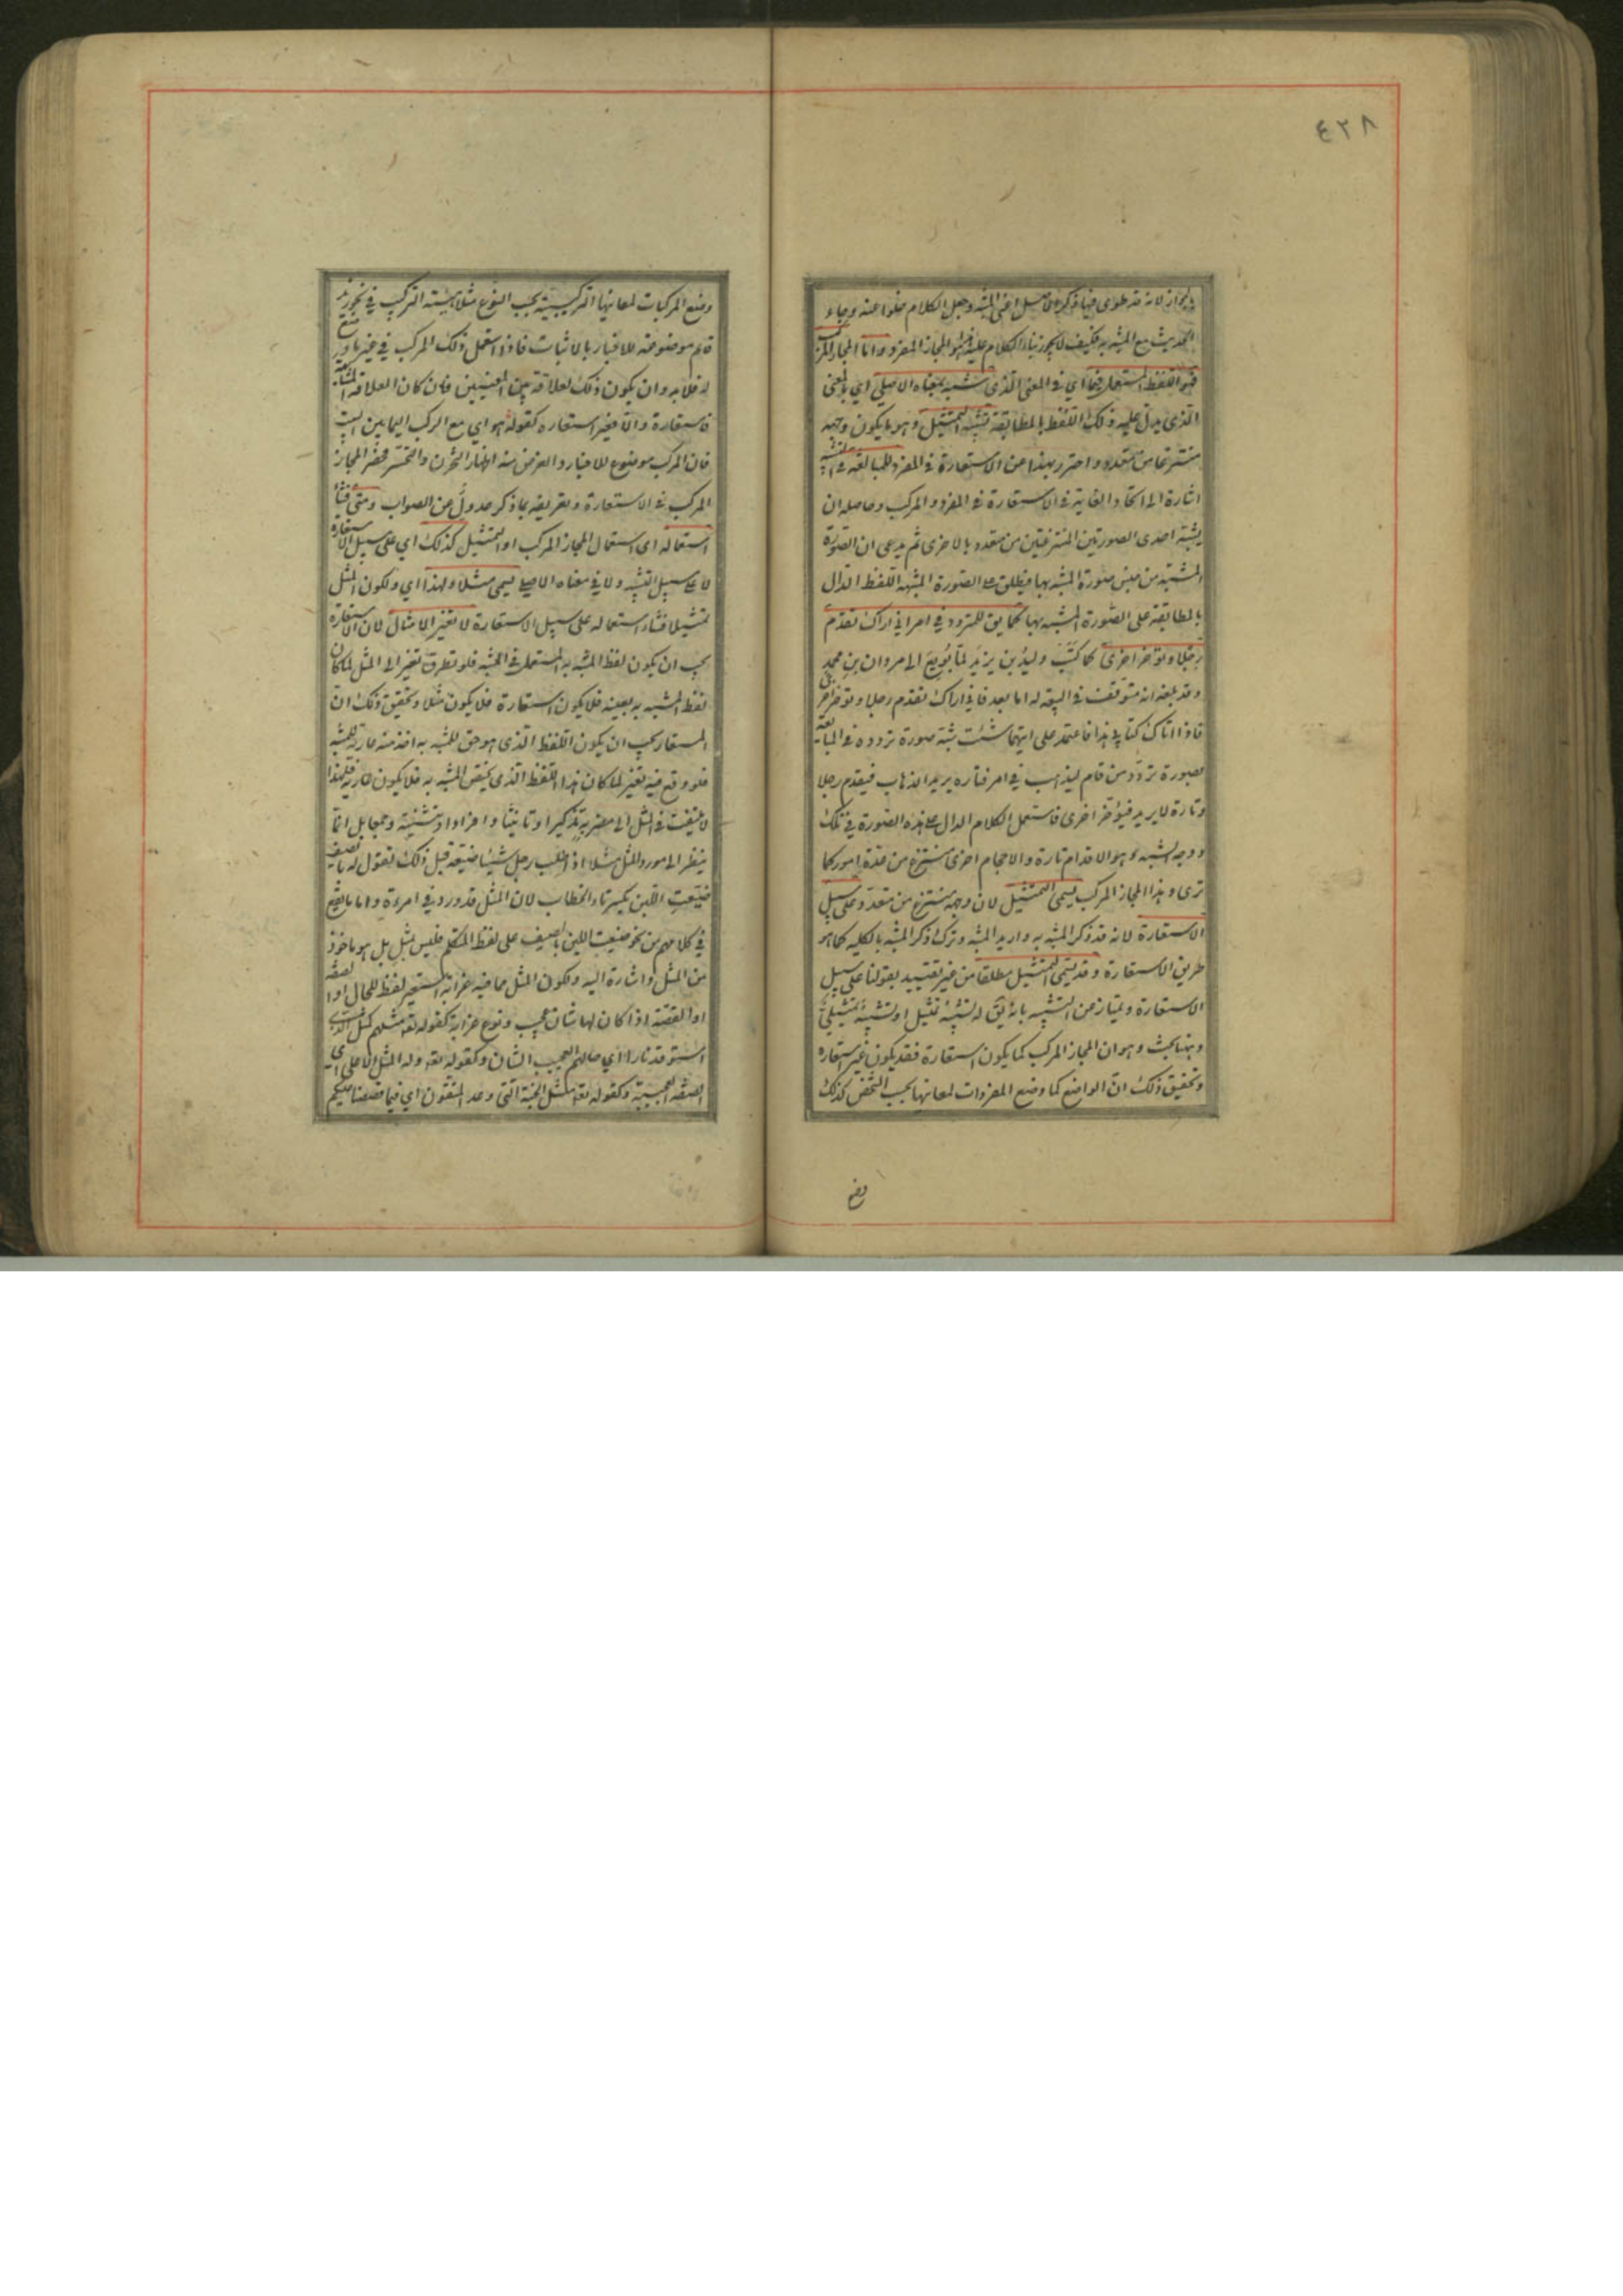 ٤٢٨
بالجواز لانه قد طوى فيها ذكر الاصل اعنى المشبه وجعل الكلام خلوا عنه وجاء
الحديث مع المشبه به فكيف لا يجوز بناء الكلام عليه فهذا هو المجاز المفرد واما المجاز المركب
فهو اللفظ المستعمل فيما اي في المعنى الذى شبه بمعناه الاصلي اي بالمعنى
الذى يدل عليه ذلك اللفظ بالمطابقة تشبيه التمثيل وهو ما يكون وجهه
منتزعا من متعدد واحترز بهذا عن الاستعارة في المفرد للمبالغة في التشبيه
اشارة الى اتحاد الغاية في الاستعارة في المفرد والمركب وحاصله ان
يشبه احدى الصورتين المنتزعتين من متعدد بالاخرى ثم يدعى ان الصورة
المشبهة من جنس صورة المشبه بها فيطلق على الصورة المشبهة اللفظ الدال
بالمطابقة على الصورة المشبه بها كما يق للمتردد في امر اني اراك تقدم
رجلا وتؤخر اخرى كما كتب وليد بن يزيد لما بويع الى مروان بن محمد
وقد بلغه انه متوقف في البيعة له اما بعد فاني اراك تقدم رجلا وتؤخر اخرى
فاذا اتاك كتابي هذا فاعتمد على ايتهما شئت شبه صورة تردده في المبايعة
بصورة تردد من قام ليذهب في امر فتارة يريد الذهاب فيقدم رجلا
وتارة لا يريد فيؤخر اخرى فاستعمل الكلام الدال على هذه الصورة في تلك
ووجه الشبه وهو الاقدام تارة والاحجام اخرى منتزع من عدة امور كما
ترى وهذا المجاز المركب يسمى التمثيل لان وجهه منتزع من متعدد على سبيل
الاستعارة لانه قد ذكر المشبه به واريد المشبه وترك ذكر المشبه بالكلية كما هو
طريق الاستعارة وقد يسمى التمثيل مطلقا من غير تقييد بقولنا على سبيل
الاستعارة ويمتاز عن التشبيه بانه يق له تشبيه تمثيل او تشبيه تمثيلي
وههنا بحث وهو ان المجاز المركب كما يكون استعارة فقد يكون غير استعارة
وتحقيق ذلك ان الواضع كما وضع المفردات لمعانيها بحسب الشخص كذلك
وضع
وضع المركبات لمعانيها التركيبية بحسب النوع مثلا هيئة التركيب في نحو زيد
قائم موضوعة للاخبار بالاثبات فاذا استعمل ذلك المركب في غير ما وضع
له فلا بد وان يكون ذلك لعلاقة بين المعنيين فان كان العلاقة المشابهة
فاستعارة والا فغير استعارة كقوله هواي مع الركب اليمانين البيت
فان المركب موضوع للاخبار والغرض منه اظهار التحزن والتحسر فحصر المجاز
المركب في الاستعارة وتعريفه بما ذكر عدول عن الصواب ومتى فشا
استعماله اي استعمال المجاز المركب او التمثيل كذلك اي على سبيل الاستعارة
لا على سبيل التشبيه ولا في معناه الاصلي يسمى مثلا ولهذا اي ولكون المثل
تمثيلا فشا استعماله على سبيل الاستعارة لا تغير الامثال لان الاستعارة
يجب ان يكون لفظ المشبه به المستعمل في المشبه فلو تطرق تغير الى المثل لما كان
لفظ المشبه به بعينه فلا يكون استعارة فلا يكون مثلا وتحقيق ذلك ان
المستعار يجب ان يكون اللفظ الذى هو حق للمشبه به اخذ منه عارية للمشبه
فلو وقع فيه تغير لما كان هذا اللفظ الذى يخص المشبه به فلا يكون عارية فلهذا
لا يلتفت في المثل الى مضربه تذكيرا او تانيثا وافرادا وتثنية وجمعا بل انما
ينظر الى مورد المثل مثلا اذا طلب رجل شيئا ضيعه قبل ذلك تقول له بالصيف
ضيعت اللبن بكسر تاء الخطاب لان المثل قد ورد في امرءة واما ما يقع
في كلامهم من نحو ضيعت اللبن بالصيف على لفظ المتكلم فليس بمثل بل هو ماخوذ
من المثل واشارة اليه ولكون المثل مما فيه غرابة استعير لفظ للحال او الصفة
او القصة اذا كان لها شان عجيب ونوع غرابة كقوله تعه مثلهم كمثل الذي
استوقد نارا اي حالهم العجيب الشان وكقوله تعه وله المثل الاعلى اي
الصفة العجيبة وكقوله تعه مثل الجنة التى وعد المتقون اي فيما قصصنا عليكم